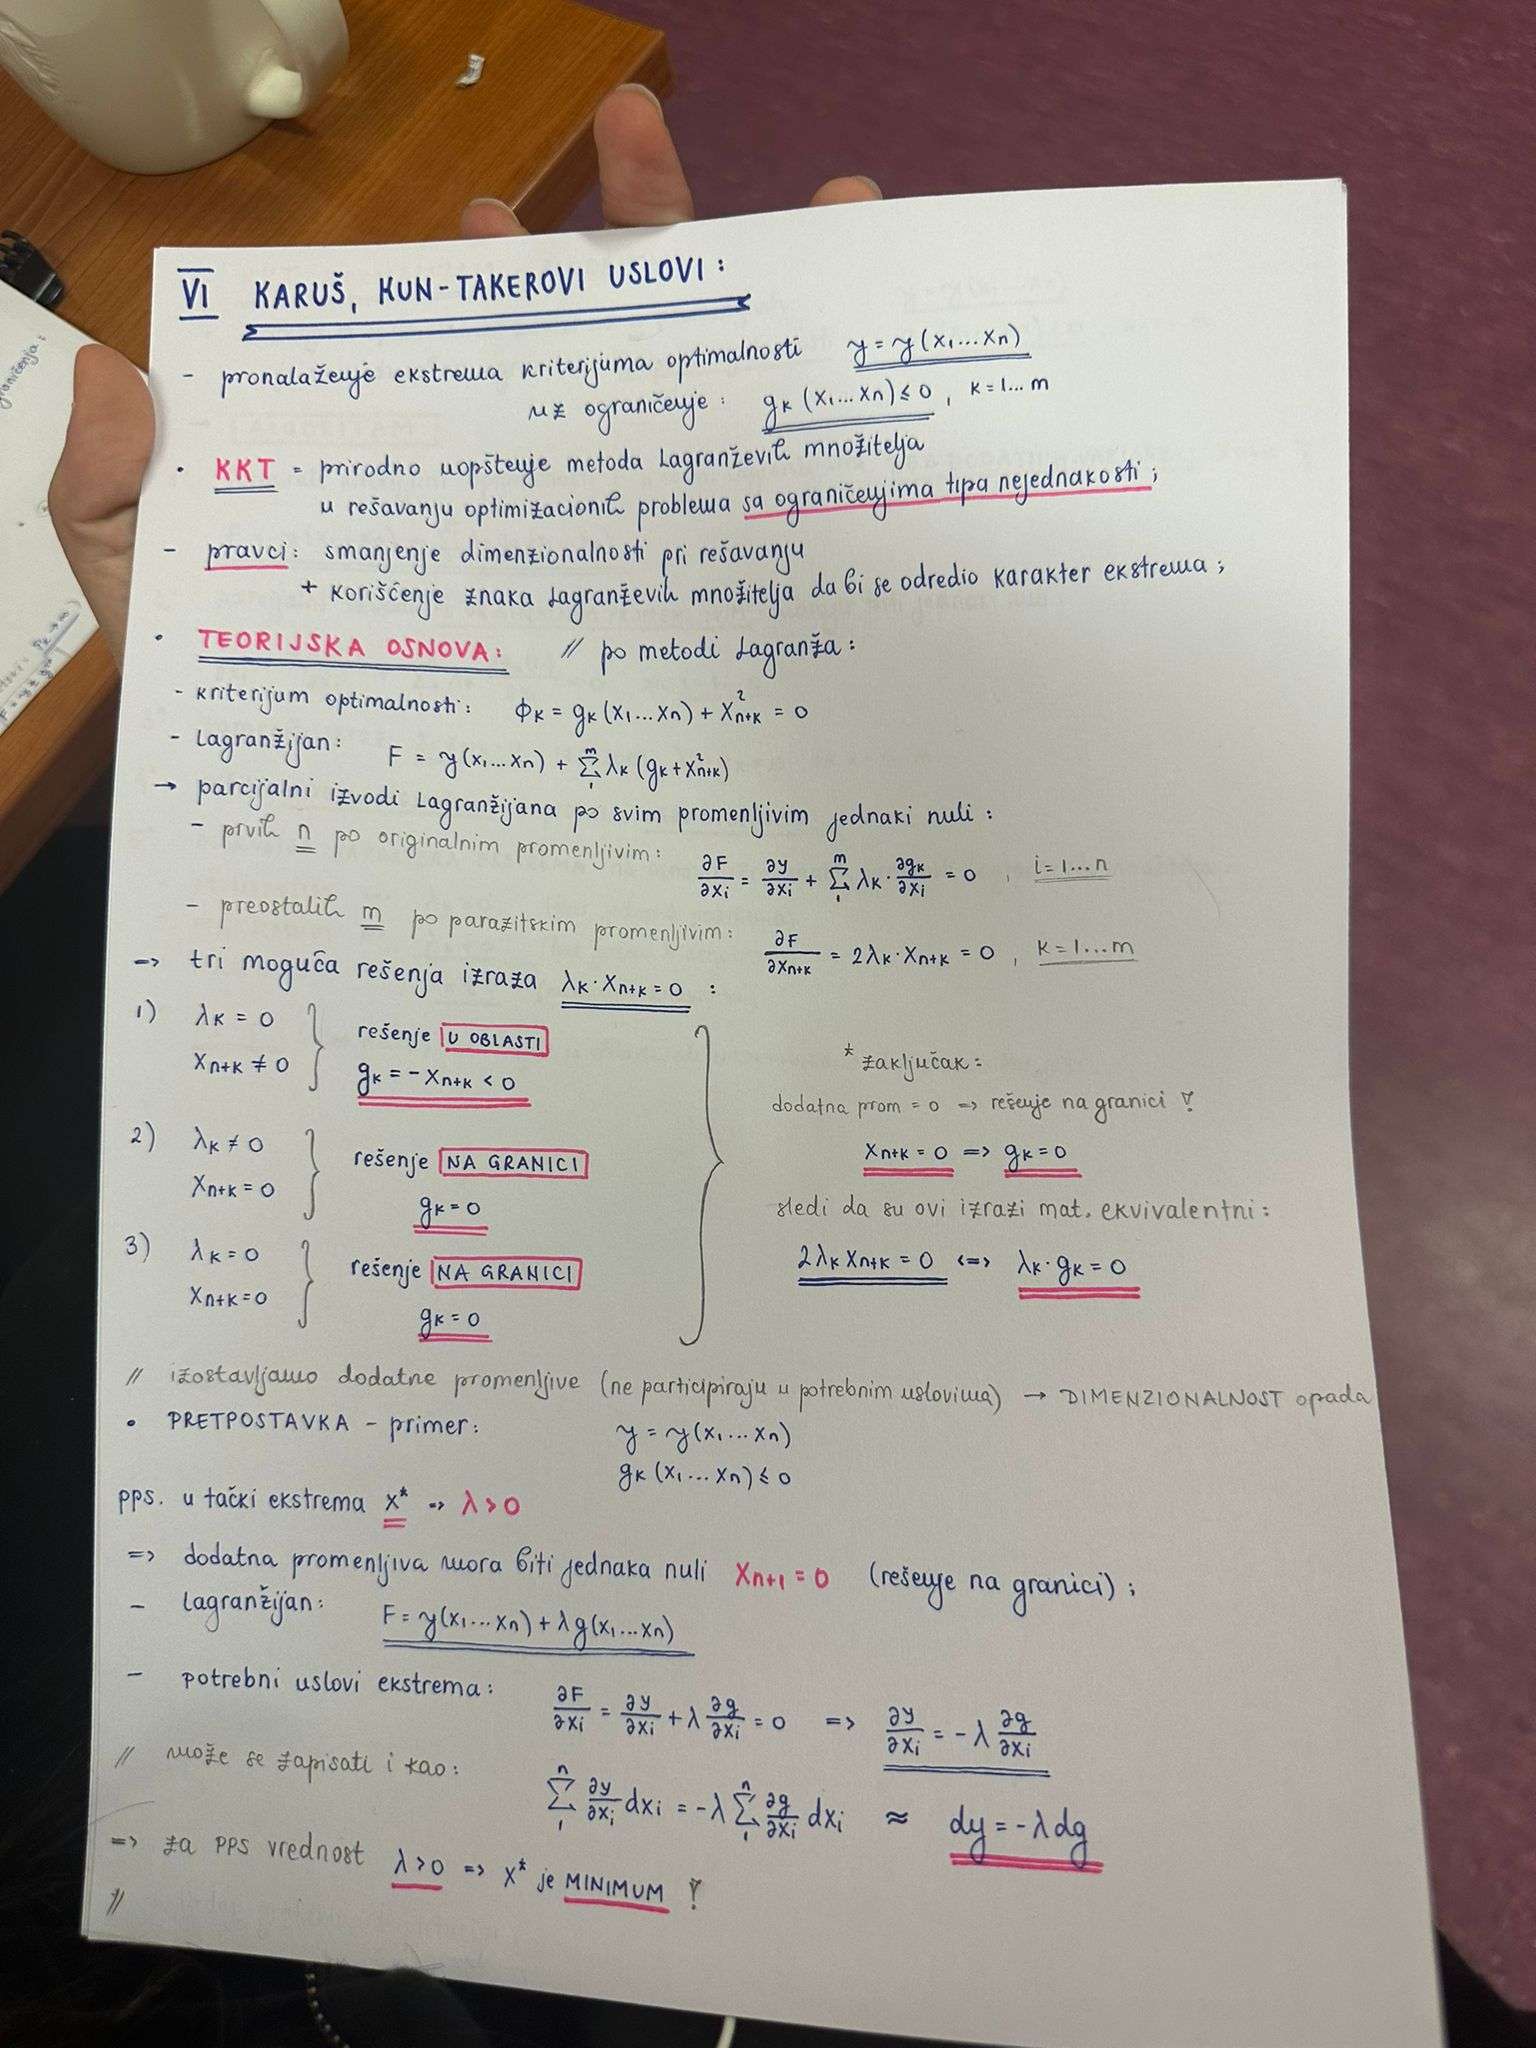 VI KARUŠ, KUN-TAKEROVI USLOVI:
- pronalaženje ekstrema kriterijuma optimalnosti y = y(x₁...xₙ)
uz ograničenje: gₖ(x₁...xₙ) ≤ 0, k = 1...m
• KKT = prirodno uopštenje metoda Lagranževih množitelja
u rešavanju optimizacionih problema sa ograničenjima tipa nejednakosti;
- pravci: smanjenje dimenzionalnosti pri rešavanju
+ korišćenje znaka Lagranževih množitelja da bi se odredio karakter ekstrema;
• TEORIJSKA OSNOVA: // po metodi Lagranža:
- kriterijum optimalnosti: ϕₖ = gₖ(x₁...xₙ) + x²ₙ₊ₖ = 0
- Lagranžijan: F = y(x₁...xₙ) + Σ₁ᵐ λₖ(gₖ + x²ₙ₊ₖ)
→ parcijalni izvodi Lagranžijana po svim promenljivim jednaki nuli:
- prvih n po originalnim promenljivim: ∂F/∂xᵢ = ∂y/∂xᵢ + Σ₁ᵐ λₖ · ∂gₖ/∂xᵢ = 0, i = 1...n
- preostalih m po parazitskim promenljivim: ∂F/∂xₙ₊ₖ = 2λₖ · xₙ₊ₖ = 0, k = 1...m
=> tri moguća rešenja izraza λₖ · xₙ₊ₖ = 0 :
1) λₖ = 0
xₙ₊ₖ ≠ 0
rešenje U OBLASTI
gₖ = -xₙ₊ₖ < 0
2) λₖ ≠ 0
xₙ₊ₖ = 0
rešenje NA GRANICI
gₖ = 0
3) λₖ = 0
xₙ₊ₖ = 0
rešenje NA GRANICI
gₖ = 0
* zaključak:
dodatna prom = 0 => rešenje na granici !
xₙ₊ₖ = 0 => gₖ = 0
sledi da su ovi izrazi mat. ekvivalentni:
2λₖxₙ₊ₖ = 0 <=> λₖ · gₖ = 0
// izostavljamo dodatne promenljive (ne participiraju u potrebnim uslovima) → DIMENZIONALNOST opada
• PRETPOSTAVKA - primer: y = y(x₁...xₙ)
gₖ(x₁...xₙ) ≤ 0
pps. u tački ekstrema x* => λ > 0
=> dodatna promenljiva mora biti jednaka nuli xₙ₊₁ = 0 (rešenje na granici);
- Lagranžijan: F = y(x₁...xₙ) + λg(x₁...xₙ)
- potrebni uslovi ekstrema: ∂F/∂xᵢ = ∂y/∂xᵢ + λ ∂g/∂xᵢ = 0 => ∂y/∂xᵢ = -λ ∂g/∂xᵢ
// može se zapisati i kao: Σ₁ⁿ ∂y/∂xᵢ dxᵢ = -λ Σ₁ⁿ ∂g/∂xᵢ dxᵢ ≈ dy = -λdg
=> za PPS vrednost λ > 0 => x* je MINIMUM !
//